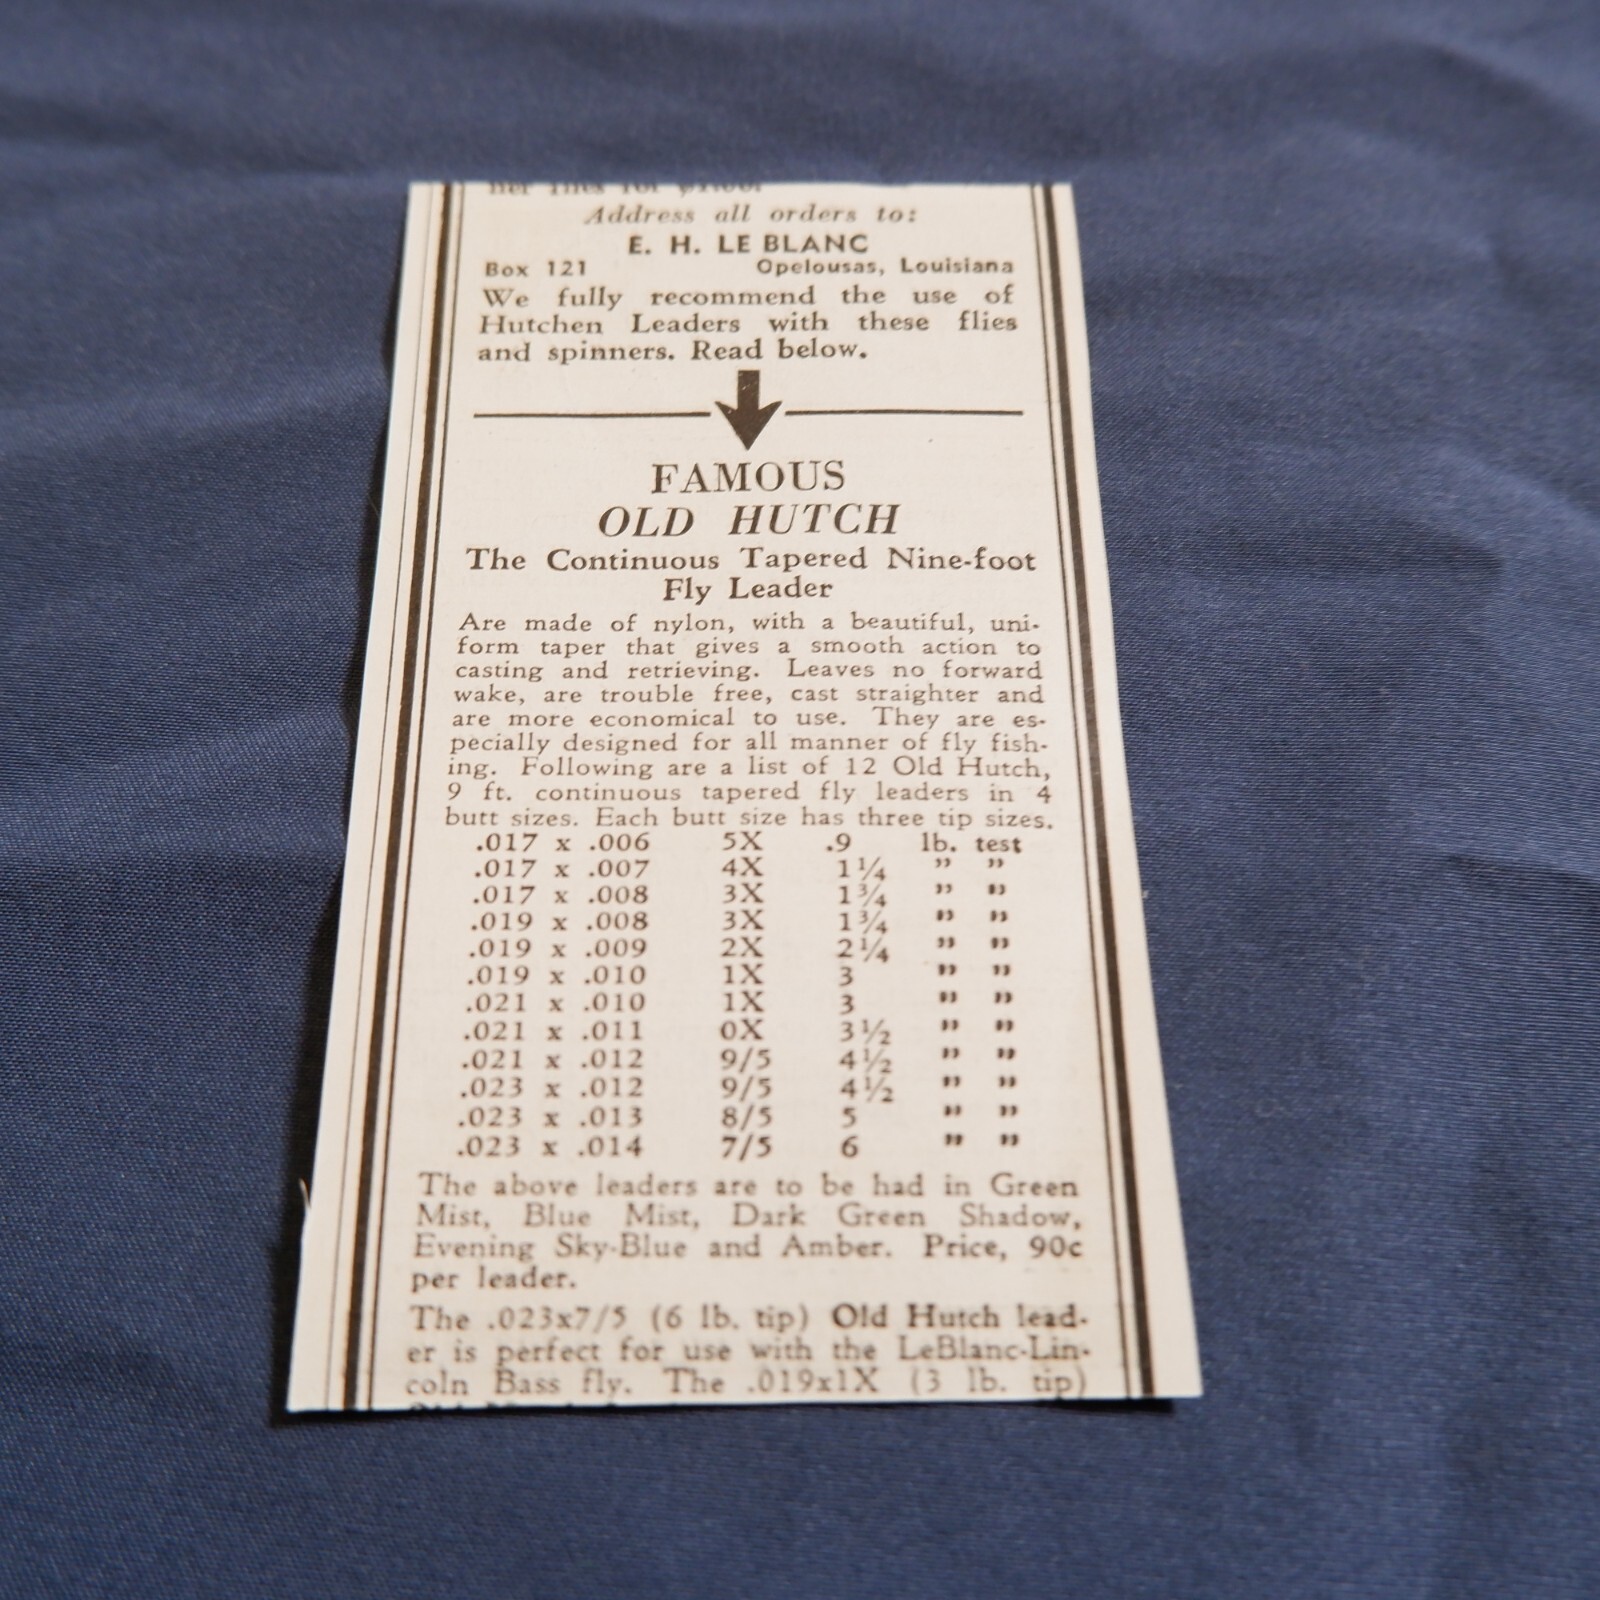 ner flies for $1.00.
Address all orders to:
E. H. LE BLANC
Box 121 Opelousas, Louisiana
We fully recommend the use of
Hutchen Leaders with these flies
and spinners. Read below.
FAMOUS
OLD HUTCH
The Continuous Tapered Nine-foot
Fly Leader
Are made of nylon, with a beautiful, uni-
form taper that gives a smooth action to
casting and retrieving. Leaves no forward
wake, are trouble free, cast straighter and
are more economical to use. They are es-
pecially designed for all manner of fly fish-
ing. Following are a list of 12 Old Hutch,
9 ft. continuous tapered fly leaders in 4
butt sizes. Each butt size has three tip sizes.
.017 x .006 5X .9 lb. test
.017 x .007 4X 1¼ " "
.017 x .008 3X 1¾ " "
.019 x .008 3X 1¾ " "
.019 x .009 2X 2¼ " "
.019 x .010 1X 3 " "
.021 x .010 1X 3 " "
.021 x .011 0X 3½ " "
.021 x .012 9/5 4½ " "
.023 x .012 9/5 4½ " "
.023 x .013 8/5 5 " "
.023 x .014 7/5 6 " "
The above leaders are to be had in Green
Mist, Blue Mist, Dark Green Shadow,
Evening Sky-Blue and Amber. Price, 90c
per leader.
The .023x7/5 (6 lb. tip) Old Hutch lead-
er is perfect for use with the LeBlanc-Lin-
coln Bass fly. The .019x1X (3 lb. tip)